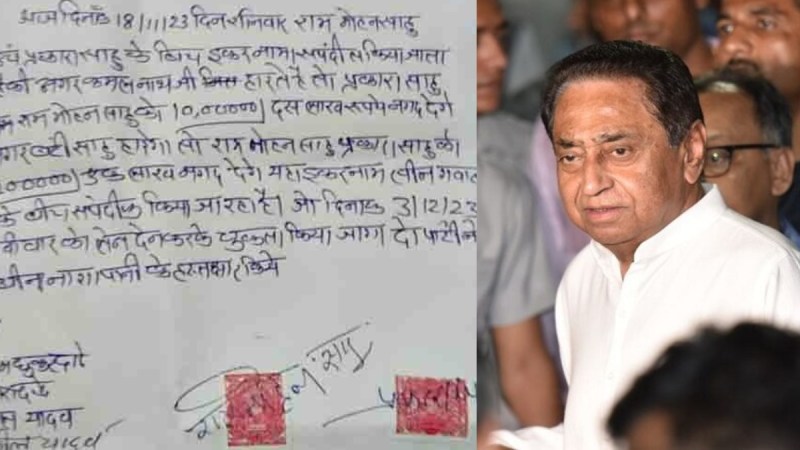 आज दिनाँक 18/11/23 दिन शनिवार राम मोहन साहू
एवं प्रकाश साहु के बिच इकरनामा संपंदीत किया जाता
है की अगर कमलनाथ जी हारते है तो प्रकाश साहु
राम मोहन साहु को 10,00000/ दस लाख रूपये नगद देंगे
बंटी साहु हारेगा तो राम मोहन साहु प्रकाश साहु को
100000/ एक लाख नगद देंगे यहा इकरनाम तीन गवाह
के बीच संपंदीत किया जा रहा है। जो दिनाक 3/12/23
को लेन देन करके चुकता किया जाग दो पार्टी ने
बीना नाशा पानी के हस्ताक्षर किये
यादव
यादव